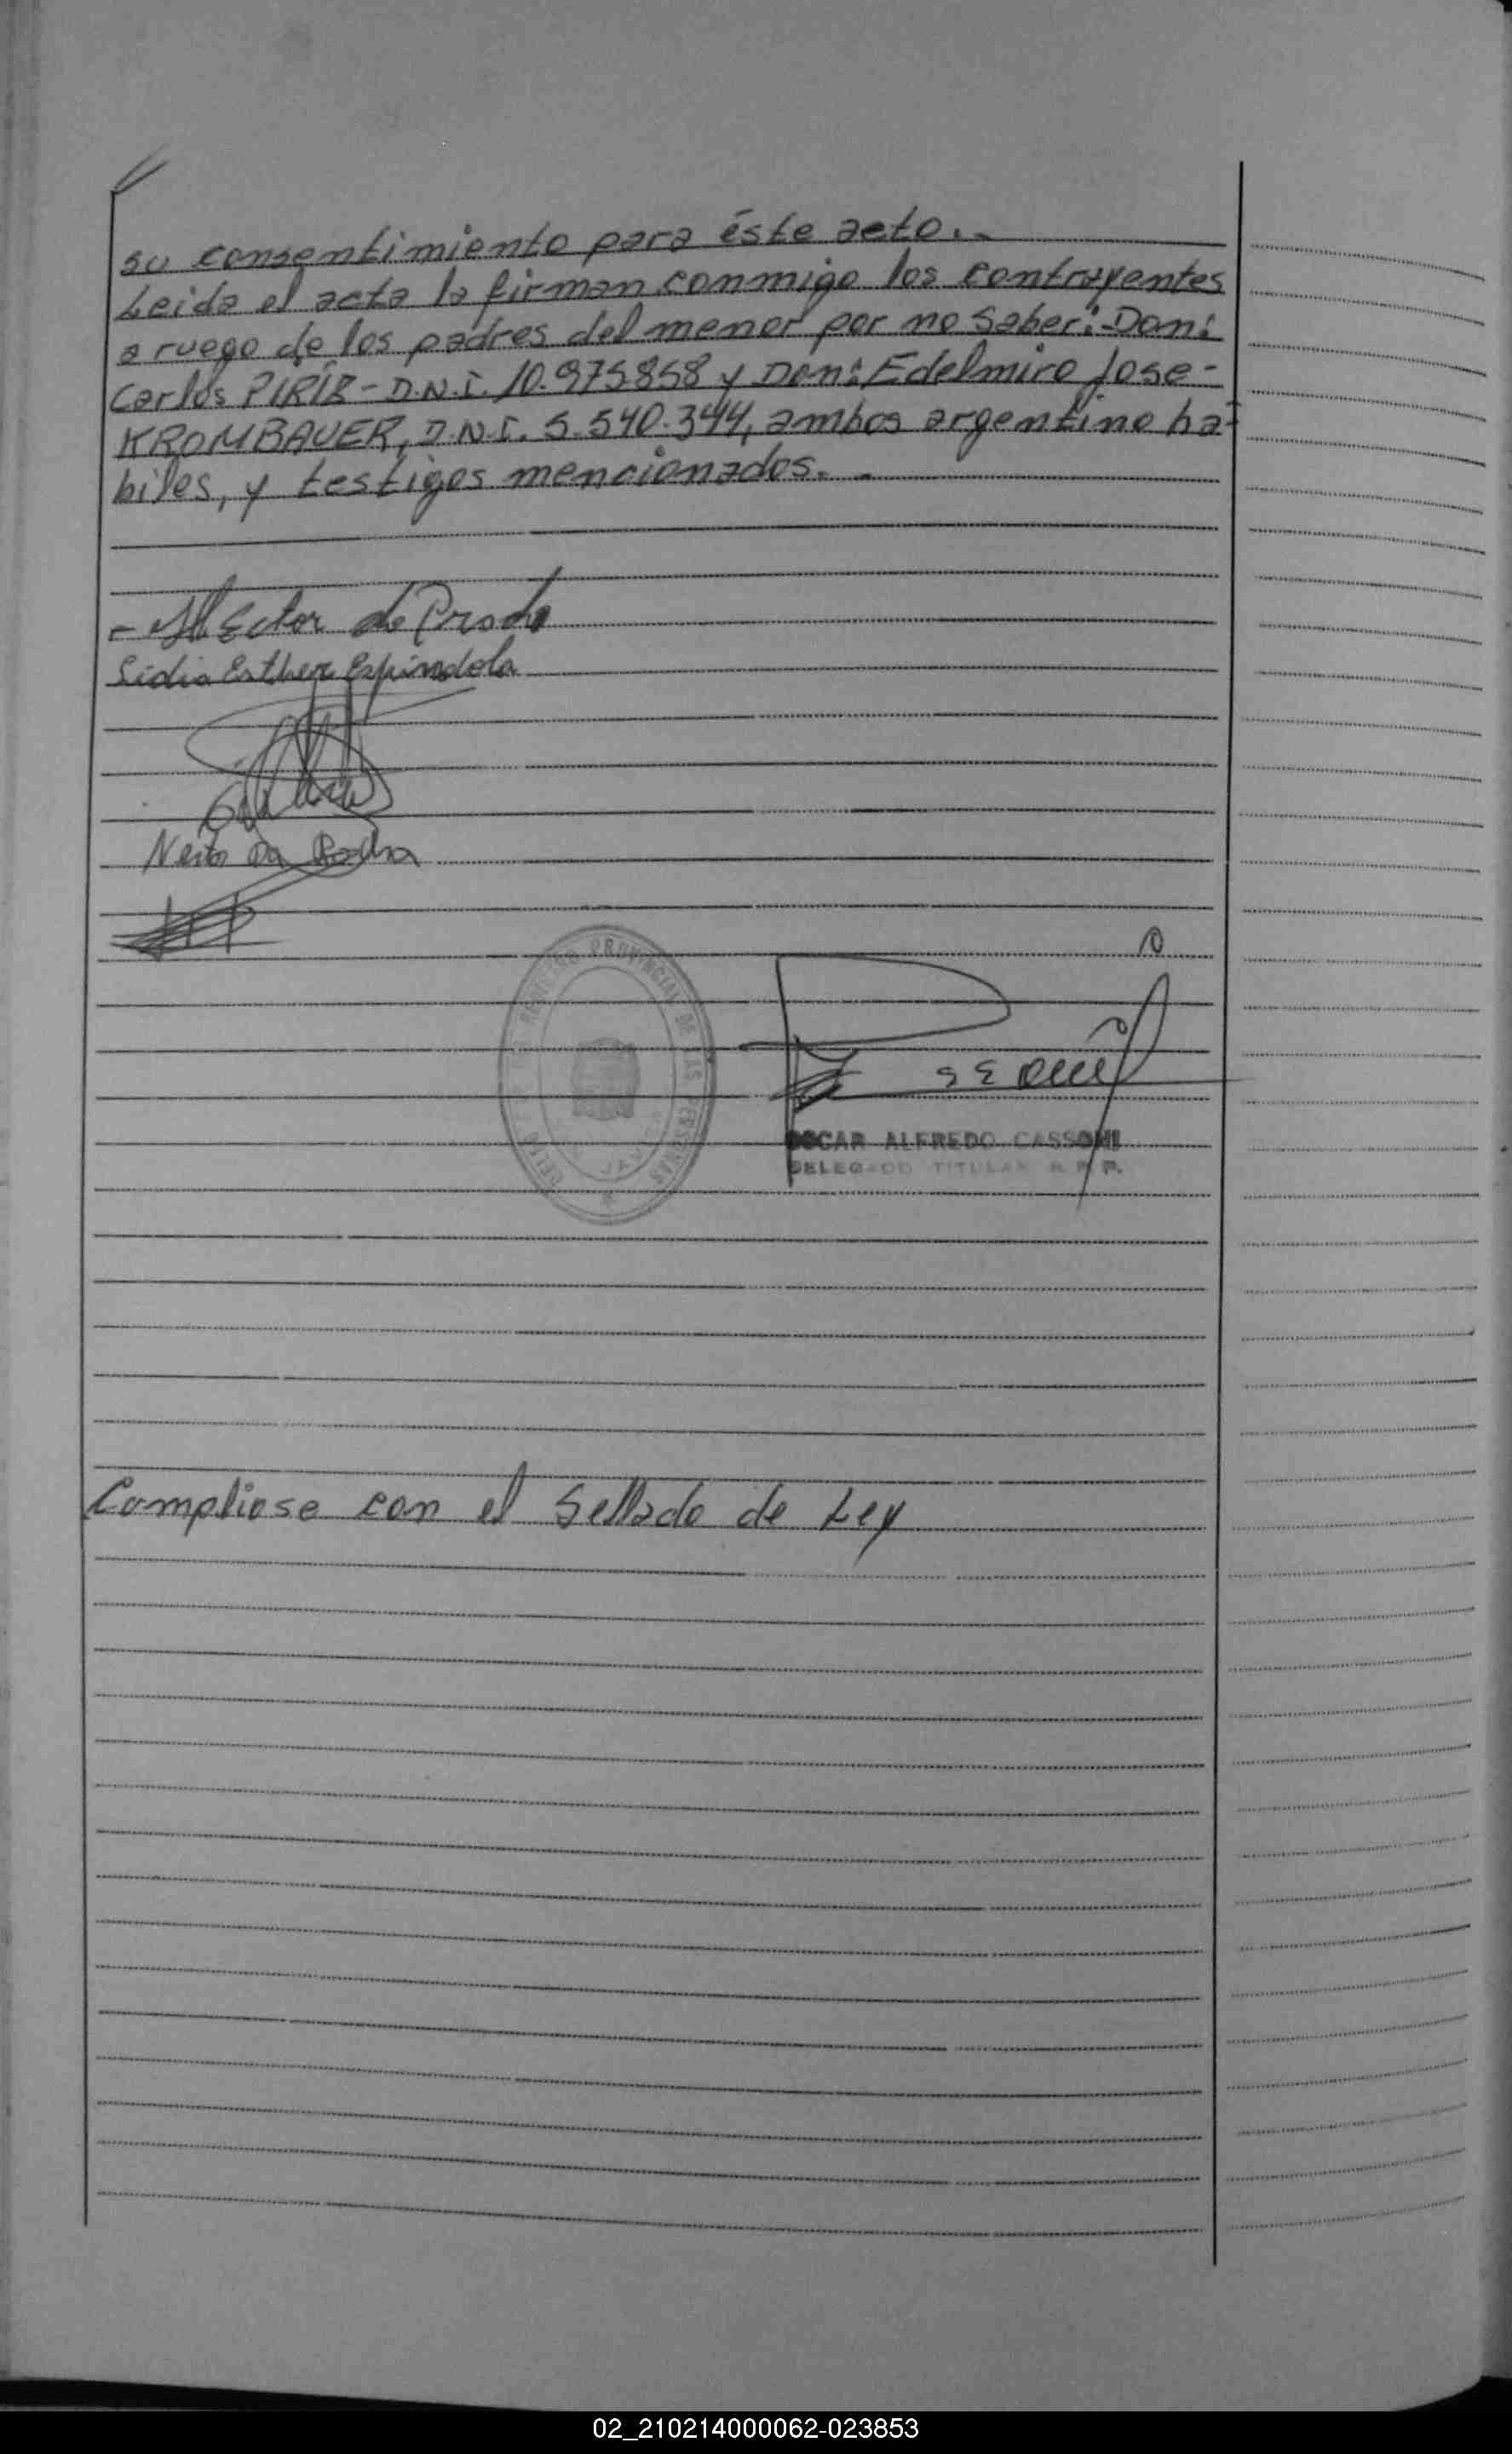 su consentimiento para éste acto.-
Leida el acta la firman conmigo los contrayentes
a ruego de los padres del menor por no saber:-Don:
Carlos PIRIZ- D.N.I. 10.975858 y Don: Edelmiro Jose-
KROMBAUER, D.N.I. 5.540.344, ambos argentino ha-
biles, y testigos mencionados.-
- Hector do Prado
Lidia Esther Espindola
Da Rocha
REGISTRO PROVINCIAL DE LAS PERSONAS
OSCAR ALFREDO CASSONI
DELEGADO TITULAR R. P. P.
Compliose con el Sellado de Ley
02_210214000062-023853